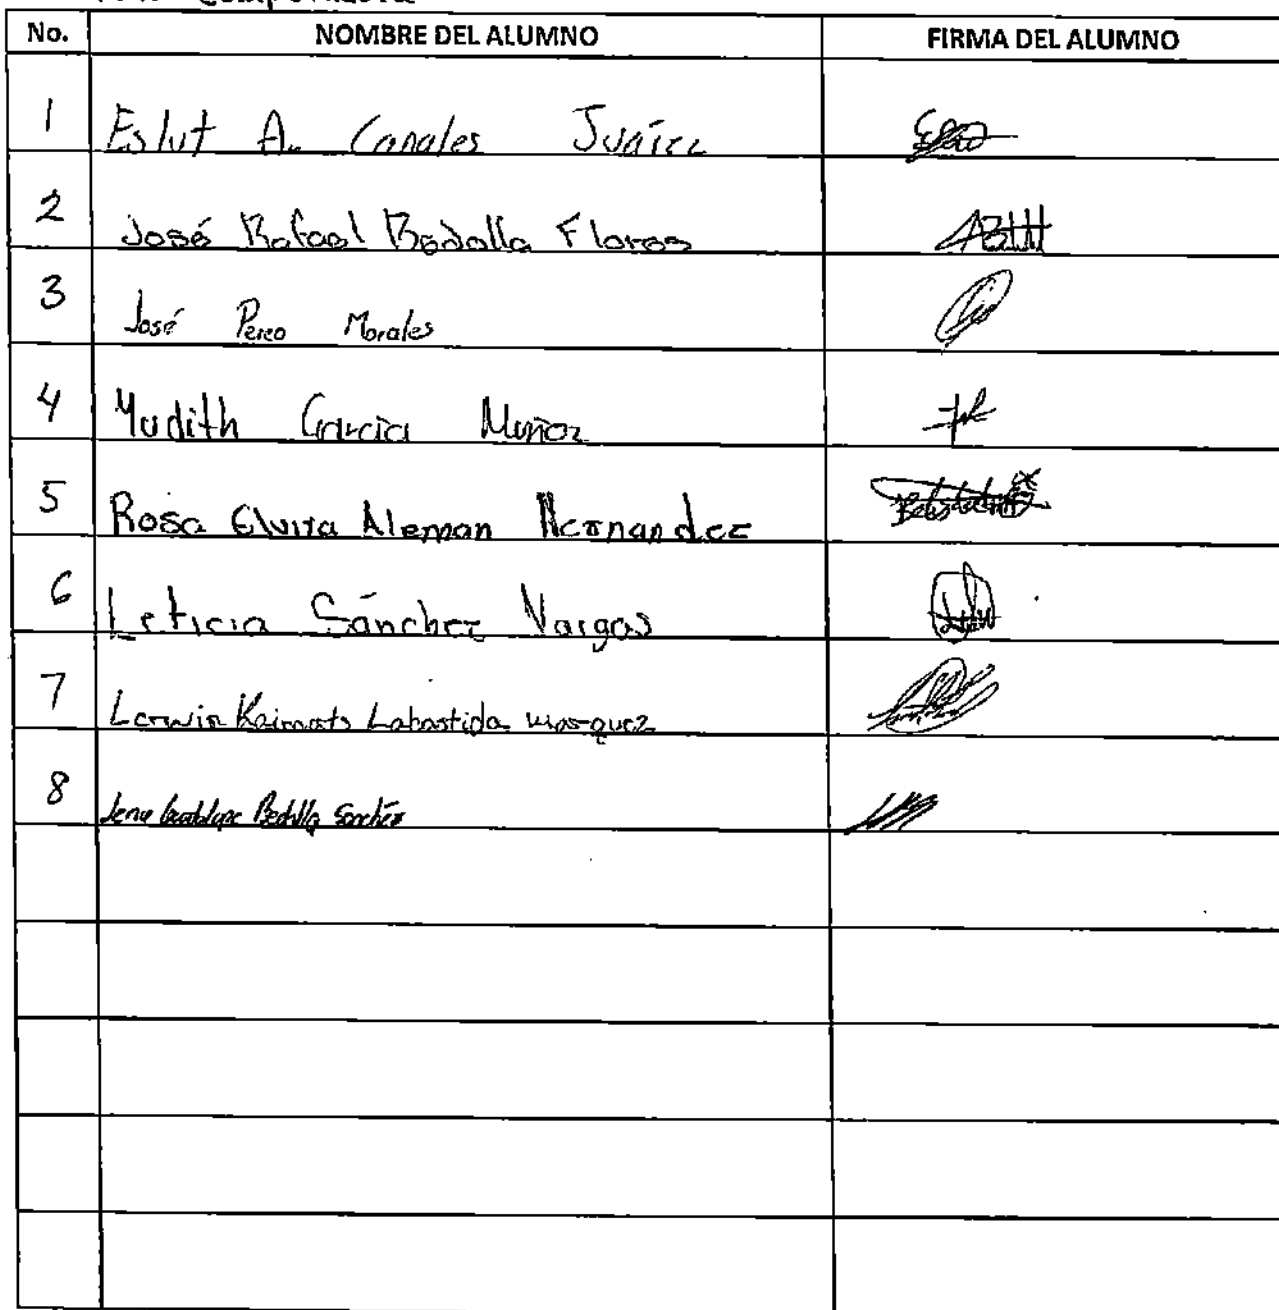 No. NOMBRE DEL ALUMNO FIRMA DEL ALUMNO
1 Eslut A. Canales Juárez
2 José Rafael Badalla Flores
3 José Pereo Morales
4 Yudith García Muñoz
5 Rosa Elvira Aleman Hernandez
6 Leticia Sánchez Vargas
7 Labastida Marquez
8 Sánchez